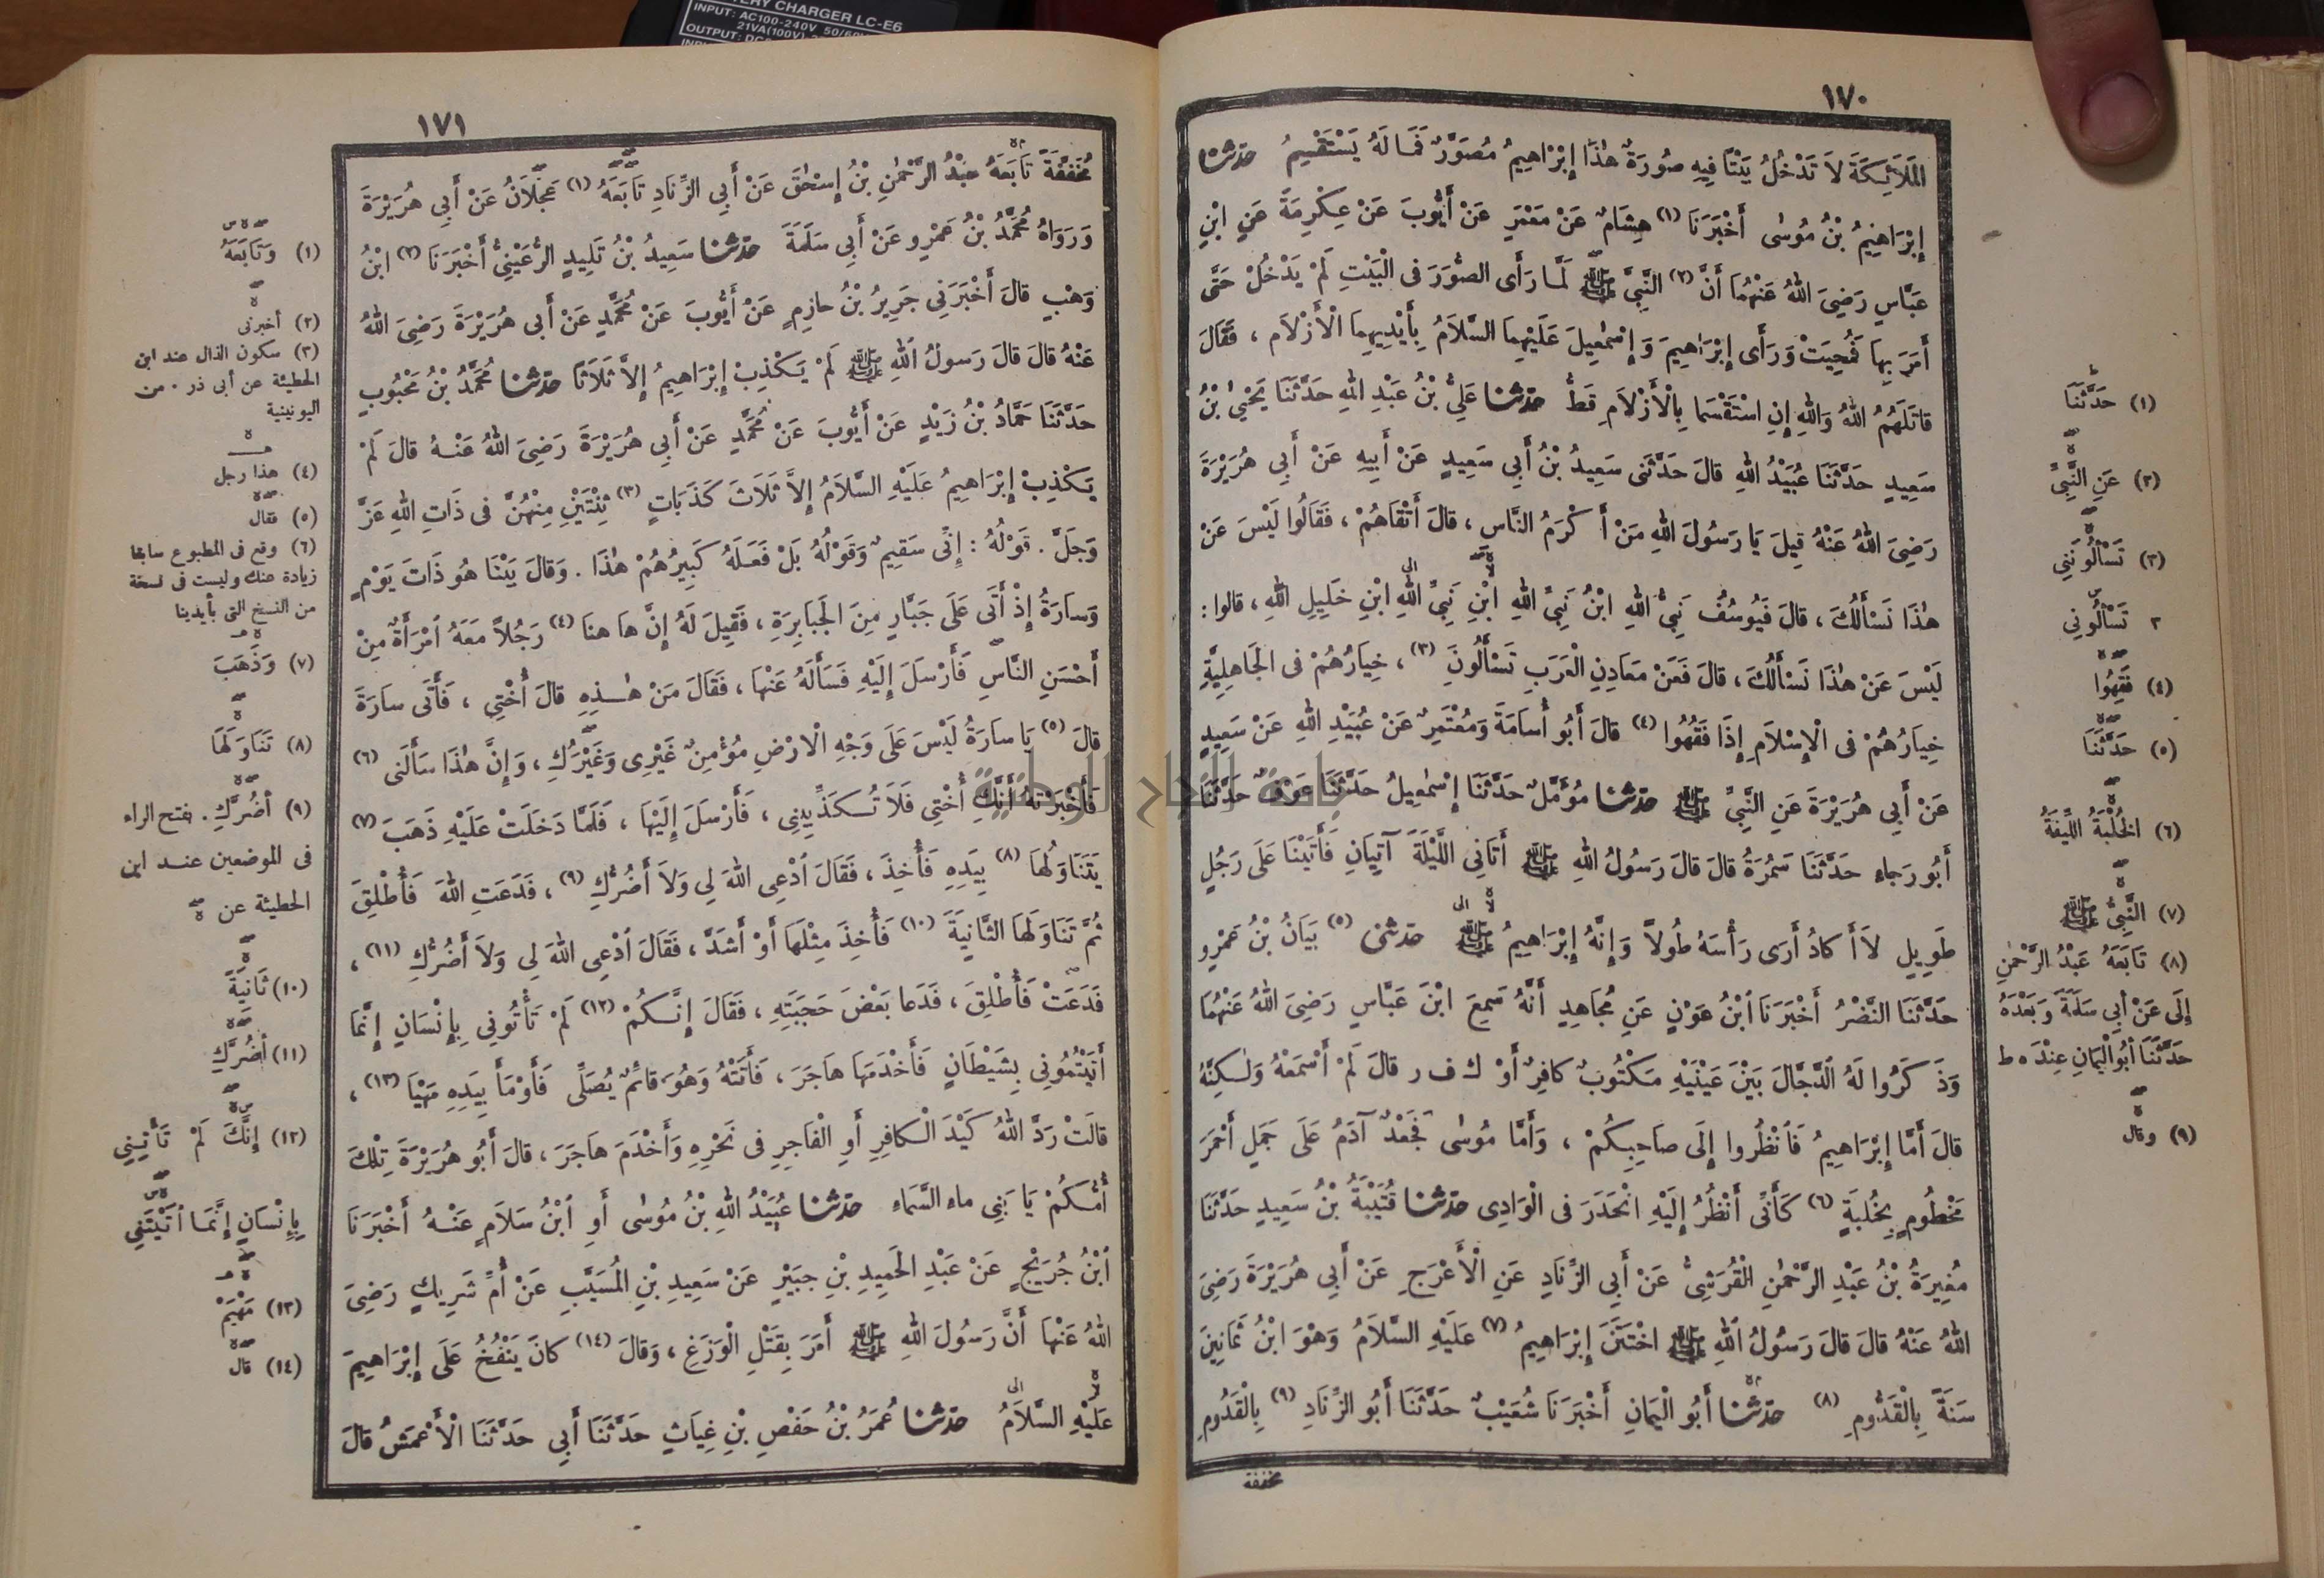 TERY CHARGER LC-E6
INPUT: AC100-240V 50/60
21VA(100V)-
OUTPUT: DC
١٧٠
الْمَلَائِكَةَ لَا تَدْخُلُ بَيْتًا فِيهِ صُورَةٌ هٰذَا إِبْرَاهِيمُ مُصَوَّرٌ فَمَا لَهُ يَسْتَقْسِمُ حدثنا
إِبْرَاهِيمُ بْنُ مُوسٰى أَخْبَرَنَا (١) هِشَامٌ عَنْ مَعْمَرٍ عَنْ أَيُّوبَ عَنْ عِكْرِمَةَ عَنِ ابْنِ
عَبَّاسٍ رَضِيَ اللهُ عَنْهُمَا أَنَّ (٢) النَّبِيَّ ﷺ لَمَّا رَأَى الصُّوَرَ فِى الْبَيْتِ لَمْ يَدْخُلْ حَتَّى
أَمَرَ بِهَا فَمُحِيَتْ وَرَأَى إِبْرَاهِيمَ وَإِسْمٰعِيلَ عَلَيْهِمَا السَّلَامُ بِأَيْدِيهِمَا الْأَزْلَامِ ، فَقَالَ
قَاتَلَهُمُ اللهُ وَاللهِ إِنِ اسْتَقْسَمَا بِالْأَزْلَامِ قَطُّ حدثنا عَلِيُّ بْنُ عَبْدِ اللهِ حَدَّثَنَا يَحْيٰى بْنُ
سَعِيدٍ حَدَّثَنَا عُبَيْدُ اللهِ قَالَ حَدَّثَنِى سَعِيدُ بْنُ أَبِي سَعِيدٍ عَنْ أَبِيهِ عَنْ أَبِي هُرَيْرَةَ
رَضِيَ اللهُ عَنْهُ قِيلَ يَا رَسُولَ اللهِ مَنْ أَكْرَمُ النَّاسِ ، قَالَ أَتْقَاهُمْ ، فَقَالُوا لَيْسَ عَنْ
هٰذَا نَسْأَلُكَ ، قَالَ فَيُوسُفُ نَبِيُّ اللهِ ابْنُ نَبِيِّ اللهِ ابْنِ نَبِيِّ اللهِ ابْنِ خَلِيلِ اللهِ ، قَالُوا :
لَيْسَ عَنْ هٰذَا نَسْأَلُكَ ، قَالَ فَعَنْ مَعَادِنِ الْعَرَبِ تَسْأَلُونَ (٣) ، خِيَارُهُمْ فِى الْجَاهِلِيَّةِ
خِيَارُهُمْ فِى الْإِسْلَامِ إِذَا فَقُهُوا (٤) قَالَ أَبُو أُسَامَةَ وَمُعْتَمِرٌ عَنْ عُبَيْدِ اللهِ عَنْ سَعِيدٍ
عَنْ أَبِي هُرَيْرَةَ عَنِ النَّبِيِّ ﷺ حدثنا مُؤَمَّلٌ حَدَّثَنَا إِسْمٰعِيلُ حَدَّثَنَا عَوْفٌ حَدَّثَنَا
أَبُو رَجَاءٍ حَدَّثَنَا سَمُرَةُ قَالَ قَالَ رَسُولُ اللهِ ﷺ أَتَانِى اللَّيْلَةَ آتِيَانِ فَأَتَيْنَا عَلَى رَجُلٍ
طَوِيلٍ لَا أَكَادُ أَرَى رَأْسَهُ طُولًا وَإِنَّهُ إِبْرَاهِيمُ ﷺ حدثنى (٥) بَيَانُ بْنُ عَمْرٍو
حَدَّثَنَا النَّضْرُ أَخْبَرَنَا ابْنُ عَوْنٍ عَنِ مُجَاهِدٍ أَنَّهُ سَمِعَ ابْنَ عَبَّاسٍ رَضِيَ اللهُ عَنْهُمَا
وَذَكَرُوا لَهُ الدَّجَّالَ بَيْنَ عَيْنَيْهِ مَكْتُوبٌ كَافِرٌ أَوْ ك ف ر قَالَ لَمْ أَسْمَعْهُ وَلٰكِنَّهُ
قَالَ أَمَّا إِبْرَاهِيمُ فَانْظُرُوا إِلَى صَاحِبِكُمْ ، وَأَمَّا مُوسٰى فَجَعْدٌ آدَمُ عَلَى جَمَلٍ أَحْمَرَ
مَخْطُومٍ بِخُلْبَةٍ (٦) كَأَنِّى أَنْظُرُ إِلَيْهِ انْحَدَرَ فِى الْوَادِى حدثنا قُتَيْبَةُ بْنُ سَعِيدٍ حَدَّثَنَا
مُغِيرَةُ بْنُ عَبْدِ الرَّحْمٰنِ الْقُرَشِيُّ عَنْ أَبِي الزِّنَادِ عَنِ الْأَعْرَجِ عَنْ أَبِي هُرَيْرَةَ رَضِيَ
اللهُ عَنْهُ قَالَ قَالَ رَسُولُ اللهِ ﷺ اخْتَتَنَ إِبْرَاهِيمُ (٧) عَلَيْهِ السَّلَامُ وَهْوَ ابْنُ ثَمَانِينَ
سَنَةً بِالْقَدُّومِ (٨) حدثنا أَبُو الْيَمَانِ أَخْبَرَنَا شُعَيْبٌ حَدَّثَنَا أَبُو الزِّنَادِ (٩) بِالْقَدُومِ
مخففة
(١) حَدَّثَنَا
(٢) عَنِ النَّبِيِّ
(٣) تَسْأَلُونَنِي
٣ تَسْأَلُونِي
(٤) فَقِهُوا
(٥) حَدَّثَنَا
(٦) الْخُلْبَةُ اللِّيفَةُ
(٧) النَّبِيُّ ﷺ
(٨) تَابَعَهُ عَبْدُ الرَّحْمٰنِ
إِلَى عَنْ أَبِي سَلَمَةَ وَبَعْدَهُ
حَدَّثَنَا أَبُو الْيَمَانِ عِنْدَ ه ط
(٩) وقال
١٧١
مُخَفَّفَةً تَابَعَهُ عَبْدُ الرَّحْمٰنِ بْنُ إِسْحٰقَ عَنْ أَبِي الزِّنَادِ تَابَعَهُ (١) عَجْلَانُ عَنْ أَبِي هُرَيْرَةَ
وَرَوَاهُ مُحَمَّدُ بْنُ عَمْرٍو عَنْ أَبِي سَلَمَةَ حدثنا سَعِيدُ بْنُ تَلِيدٍ الرُّعَيْنِيُّ أَخْبَرَنَا (٢) ابْنُ
وَهْبٍ قَالَ أَخْبَرَنِي جَرِيرُ بْنُ حَازِمٍ عَنْ أَيُّوبَ عَنْ مُحَمَّدٍ عَنْ أَبِى هُرَيْرَةَ رَضِيَ اللهُ
عَنْهُ قَالَ قَالَ رَسُولُ اللهِ ﷺ لَمْ يَكْذِبْ إِبْرَاهِيمُ إِلَّا ثَلَاثًا حدثنا مُحَمَّدُ بْنُ مَحْبُوبٍ
حَدَّثَنَا حَمَّادُ بْنُ زَيْدٍ عَنْ أَيُّوبَ عَنْ مُحَمَّدٍ عَنْ أَبِي هُرَيْرَةَ رَضِيَ اللهُ عَنْهُ قَالَ لَمْ
يَكْذِبْ إِبْرَاهِيمُ عَلَيْهِ السَّلَامُ إِلَّا ثَلَاثَ كَذَبَاتٍ (٣) ثِنْتَيْنِ مِنْهُنَّ فِى ذَاتِ اللهِ عَزَّ
وَجَلَّ . قَوْلُهُ : إِنِّى سَقِيمٌ وَقَوْلُهُ بَلْ فَعَلَهُ كَبِيرُهُمْ هٰذَا . وَقَالَ بَيْنَا هُوَ ذَاتَ يَوْمٍ
وَسَارَةُ إِذْ أَتَى عَلَى جَبَّارٍ مِنَ الْجَبَابِرَةِ ، فَقِيلَ لَهُ إِنَّ هَا هُنَا (٤) رَجُلًا مَعَهُ امْرَأَةٌ مِنْ
أَحْسَنِ النَّاسِ فَأَرْسَلَ إِلَيْهِ فَسَأَلَهُ عَنْهَا ، فَقَالَ مَنْ هٰذِهِ قَالَ أُخْتِي ، فَأَتَى سَارَةَ
قَالَ (٥) يَا سَارَةُ لَيْسَ عَلَى وَجْهِ الْأَرْضِ مُؤْمِنٌ غَيْرِى وَغَيْرُكِ ، وَإِنَّ هٰذَا سَأَلَنِى (٦)
فَأَخْبَرْتُهُ أَنَّكِ أُخْتِي فَلَا تُكَذِّبِينِى ، فَأَرْسَلَ إِلَيْهَا ، فَلَمَّا دَخَلَتْ عَلَيْهِ ذَهَبَ (٧)
يَتَنَاوَلُهَا (٨) بِيَدِهِ فَأُخِذَ ، فَقَالَ ادْعِى اللهَ لِي وَلَا أَضُرُّكِ (٩) ، فَدَعَتِ اللهَ فَأُطْلِقَ
ثُمَّ تَنَاوَلَهَا الثَّانِيَةَ (١٠) فَأُخِذَ مِثْلَهَا أَوْ أَشَدَّ ، فَقَالَ ادْعِى اللهَ لِي وَلَا أَضُرُّكِ (١١) ،
فَدَعَتْ فَأُطْلِقَ ، فَدَعَا بَعْضَ حَجَبَتِهِ ، فَقَالَ إِنَّكُمْ (١٢) لَمْ تَأْتُونِي بِإِنْسَانٍ إِنَّمَا
أَتَيْتُمُونِي بِشَيْطَانٍ فَأَخْدَمَهَا هَاجَرَ ، فَأَتَتْهُ وَهُوَ قَائِمٌ يُصَلِّى فَأَوْمَأَ بِيَدِهِ مَهْيَا (١٣) ،
قَالَتْ رَدَّ اللهُ كَيْدَ الْكَافِرِ أَوِ الْفَاجِرِ فِى نَحْرِهِ وَأَخْدَمَ هَاجَرَ ، قَالَ أَبُو هُرَيْرَةَ تِلْكَ
أُمُّكُمْ يَا بَنِي مَاءِ السَّمَاءِ حدثنا عُبَيْدُ اللهِ بْنُ مُوسٰى أَوِ ابْنُ سَلَامٍ عَنْهُ أَخْبَرَنَا
ابْنُ جُرَيْجٍ عَنْ عَبْدِ الْحَمِيدِ بْنِ جُبَيْرٍ عَنْ سَعِيدِ بْنِ الْمُسَيَّبِ عَنْ أُمِّ شَرِيكٍ رَضِيَ
اللهُ عَنْهَا أَنَّ رَسُولَ اللهِ ﷺ أَمَرَ بِقَتْلِ الْوَزَغِ ، وَقَالَ (١٤) كَانَ يَنْفُخُ عَلَى إِبْرَاهِيمَ
عَلَيْهِ السَّلَامُ حدثنا عُمَرُ بْنُ حَفْصِ بْنِ غِيَاثٍ حَدَّثَنَا أَبِي حَدَّثَنَا الْأَعْمَشُ قَالَ
(١) وَتَابَعَهُ
(٢) أخبرنى
(٣) سكون الذال عند ابن
الحطيئة عن أبى ذر . من
اليونينية
(٤) هذا رجل
(٥) فقال
(٦) وقع فى المطبوع سابقا
زيادة عنك وليست فى نسخة
من النسخ التى بأيدينا
(٧) وَذَهَبَ
(٨) تَنَاوَلَهَا
(٩) أَضُرَّكِ . بفتح الراء
فى الموضعين عند ابن
الحطيئة عن
(١٠) ثَانِيَةً
(١١) أَضُرَّكِ
(١٢) إِنَّكَ لَمْ تَأْتِنِي
بِإِنْسَانٍ إِنَّمَا أَتَيْتَنِي
(١٣) مَهْيَمْ
(١٤) قال
جامعة النجاح الوطنية